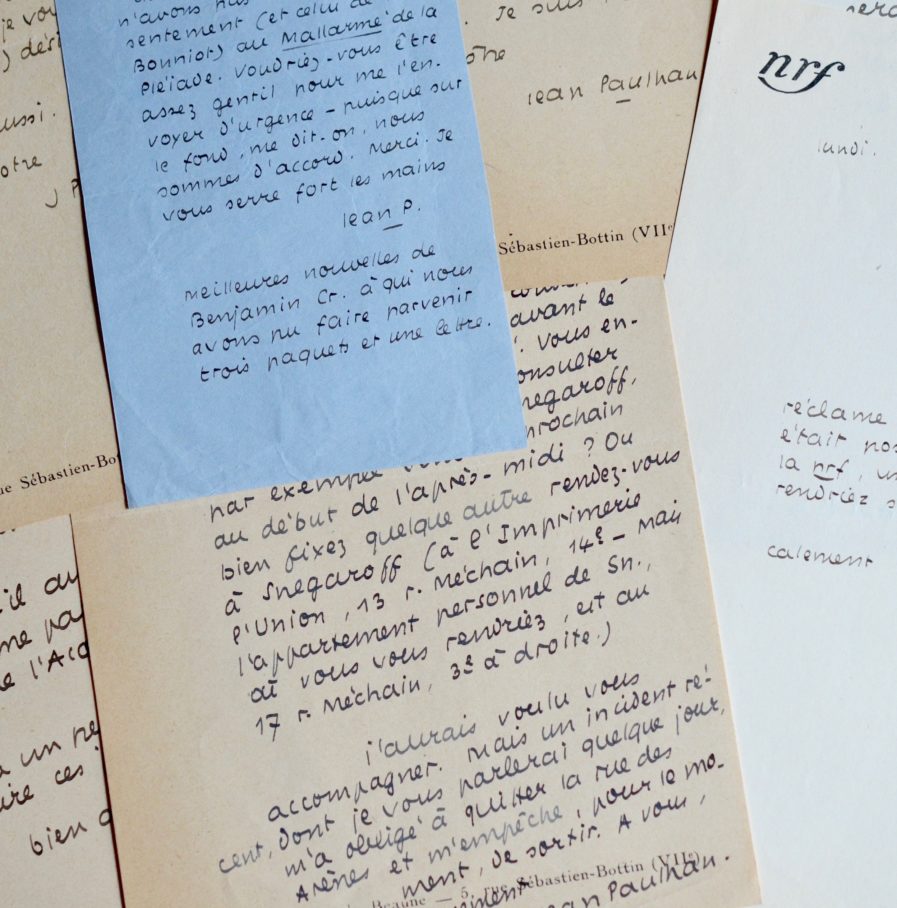 je vou
) dési
aussi.
otre
J P
ue Sébastien-Bot
n'avons
sentement (et celui de
Bonniot) au Mallarmé de la
Pléiade. Voudriez-vous être
assez gentil pour me l'en-
voyer d'urgence – puisque sur
le fond, me dit-on, nous
sommes d'accord. Merci. Je
vous serre fort les mains
Jean P.
Meilleures nouvelles de
Benjamin Cr. à qui nous
avons pu faire parvenir
trois paquets et une lettre.
. Je suis
Jean Paulhan
Sébastien-Bottin (VIIe
nrf
lundi.
réclame
était pos
la nrf, un
rendriez s
calement
avant le
. Vous en-
onsulter
negaroff,
prochain
par exemple
au début de l'après-midi ? Ou
bien fixez quelque autre rendez-vous
à Snegaroff (à l'Imprimerie
l'Union, 13 r. Méchain, 14e – mais
l'appartement personnel de Sn.,
où vous vous rendriez, est au
17 r. Méchain, 3e à droite.)
J'aurais voulu vous
accompagner. Mais un incident ré-
cent, dont je vous parlerai quelque jour,
m'a obligé à quitter la rue des
Arènes et m'empêche, pour le mo-
ment, de sortir. A vous,
Beaune — 5, rue Sébastien-Bottin (VIIe)
Jean Paulhan.
il au
me pa
e l'Aca
un pe
ire ces
bien a